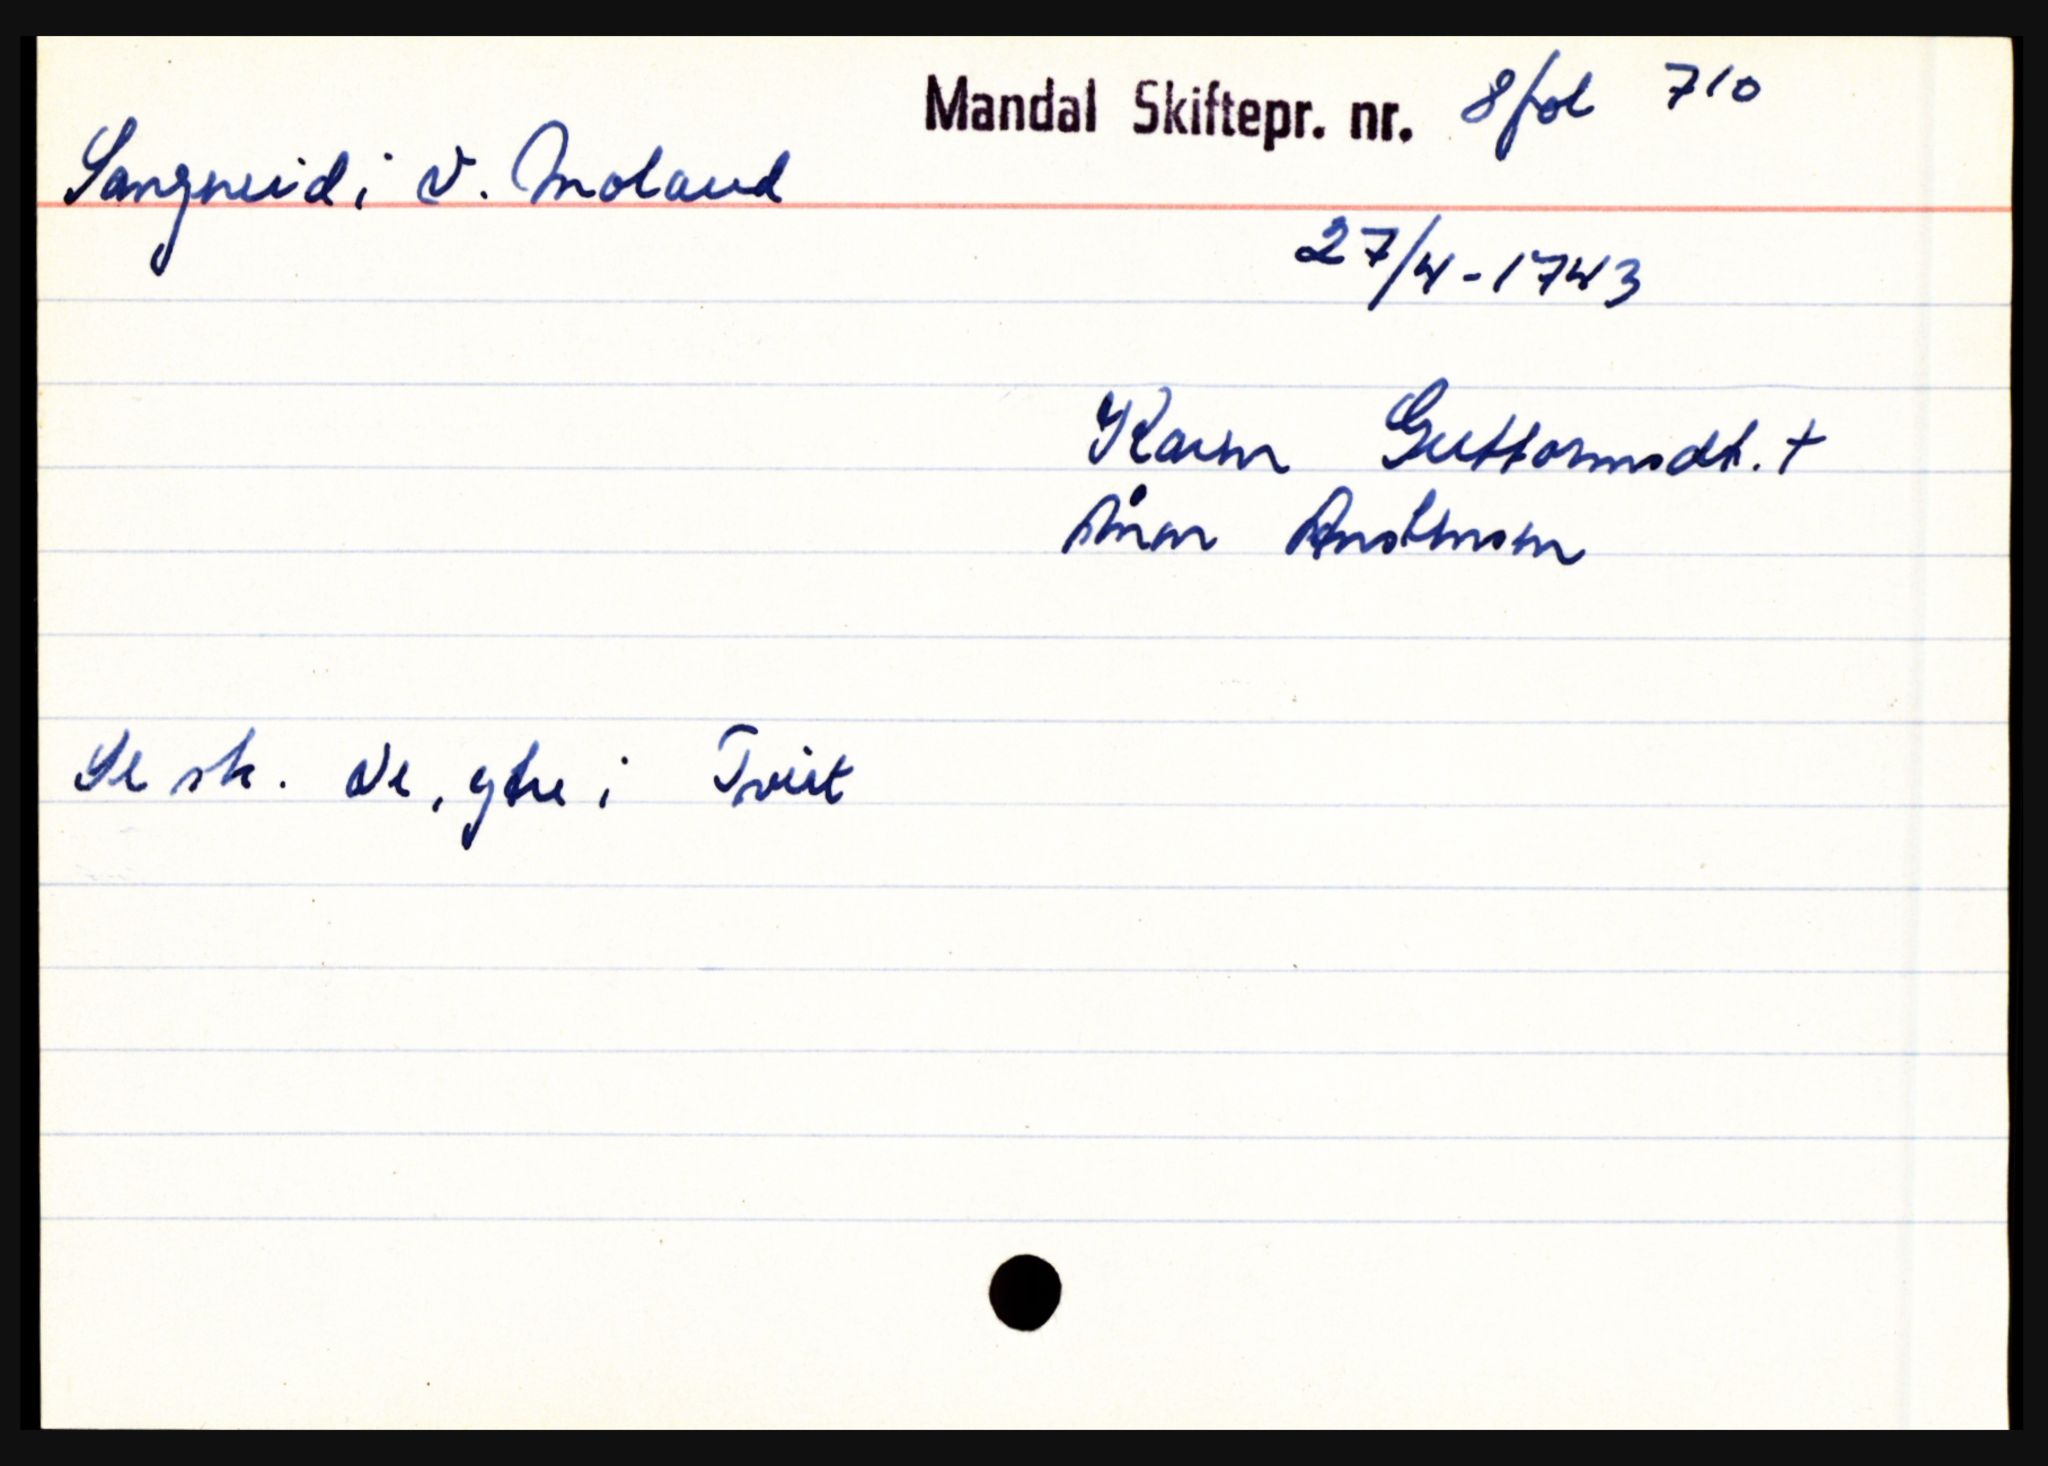 Mandal Skiftepr. nr. 8 fol 710
Langneid i V. Moland
27/4-1743
Karen Guttormsdt. +
Ånen Anstensen
Se sk. Ve, ytre i Tveit